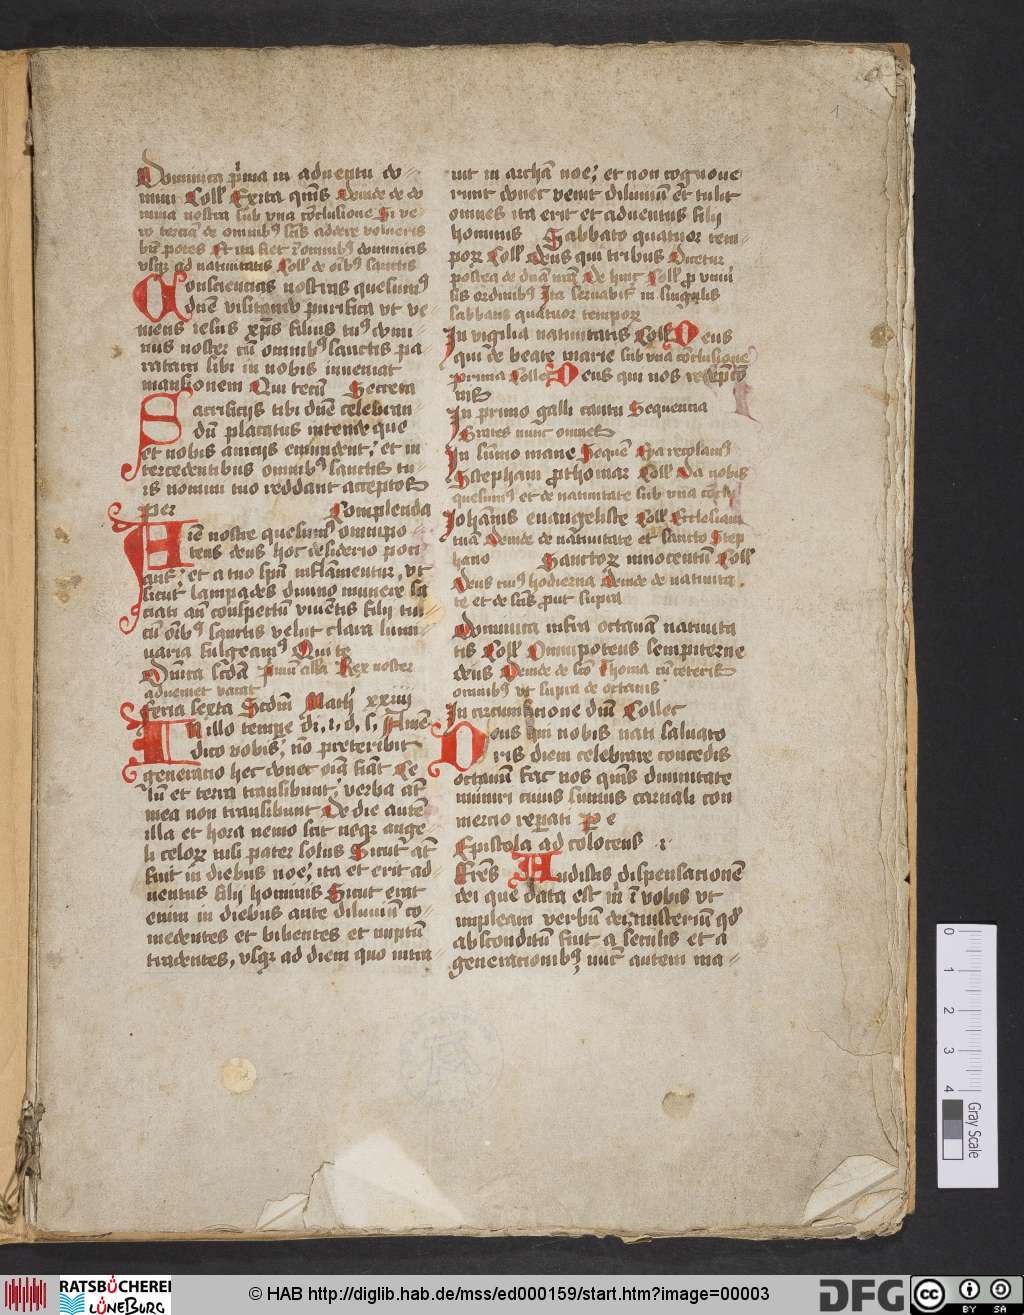 Dominica p'ma in aduentu do-
mini Coll' Excita qs Deinde de do
mina nostra sub vna oclusione Si ve
ro tercia de omnibꝰ scis addere volueris
bn potes Et ita fiet i omnibꝰ dominicis
vsqꝫ ad natiuitatis Coll' de oibꝰ sanctis
Consciencias nostras quesumꝰ
dne visitando purifica vt ve
niens iesus xps filius tuꝰ domi
nus noster cu omnibꝰ sanctis pa
ratam sibi in nobis inueniat
mansionem Qui tecu Secreta
Sacrificijs tibi dne celebran
du placatus intende que
et nobis vicijs emundent, et in
tercedentibus omnibꝰ sanctis tu-
is nomini tuo reddant acceptos
per Complenda
Fiet nostre quesumꝰ omnipo
tens deus hoc desiderio pon
et a tuo spu inflamentur, vt
sicut lampades diuino munere sa
ciati an conspectu vinentis filij tui
cu oibꝰ sanctis velut clara lumi
naria fulgeamꝰ Qui te
Dnica scda Rex noster
adueniet vacat
feria sexta Scdm Math xxiiij
In illo tempe di, i, d, s, Amen
dico vobis, no preteribit
generatio hec donec oia fiat Ce
lu et terra transibunt, verba at
mea non transibunt De die aute
illa et hora nemo scit neqꝫ ange
li celorꝫ nisi pater solus Sicut at
fuit in diebus noe, ita et erit ad
uentus filij hominis Sicut erat
enim in diebus ante diluuiu co-
medentes et bibentes et nuptu
tradentes, vsqꝫ ad diem quo intra
uit in archa noe, et non cognoue
runt donec venit diluuiu et tulit
omnes ita erit et aduentus filij
hominis Sabbato quatuor tem-
porꝫ Coll' deus qui tribus Dicetur
postea de dna nra De huic Coll' p vniu
sis ordinibꝰ Ita seruabit in singulis
sabbatis quatuor temporꝫ
In vigilia natiuitatis Coll' Deus
qui de beate marie sub vna oclusione
prima Collec Deus qui nos redempco
nis
In primo galli cantu Sequencia
Grates nunc omnes
In sumo mane Seque Eya recolamꝰ
Stephani pthomar Coll' Da nobis
quesumꝰ et de natiuitate sub vna
Johanis euangeliste Coll' Ecclesiam
tua Deinde de natiuitate et sancto Step
hano Sanctorꝫ innocentu Coll'
Deus cuiꝰ hodierna Deinde de natiuita
te et de scis put supra
Dominica infra octauam natiuita
tis Coll' Omnipotens sempiterne
deus Deinde de sco Thoma cu ceteris
omnibꝰ vt supra de octauis
In circumcisione dni Collec
Deus qui nobis nati saluato
ris diem celebrare concedis
octauum fac nos qus diuinitate
muniri cuius sumus carnali com
mercio reparati p e
Epistola ad colocens i
Fres Audistis dispensationem
dei que data est m i vobis vt
impleam verbu dei, misteriu qd
absconditu fuit a seculis et a
generationibꝰ, nuc autem ma-
1
0 1 2 3 4
Gray Scale
RATSBÜCHEREI
LÜNEBURG
© HAB http://diglib.hab.de/mss/ed000159/start.htm?image=00003
DFG
cc BY SA